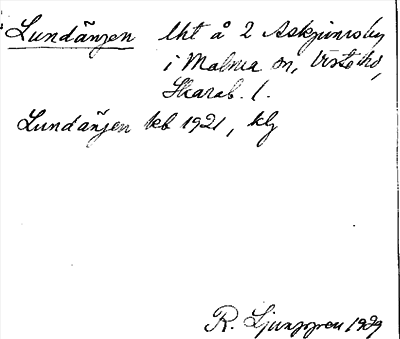 Lundängen lht å 2 Askjumsby
i Malma sn, Viste hd,
Skarab. l.
Lundängen kb 1921, klg
R. Ljunggren 1929